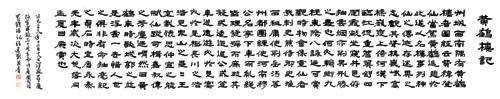 黃鶴樓記
州城西南隅有黃鶴
樓者圖經云費禕登
仙嘗駕黃鶴返憩于
此遂以名樓事列神
仙之傳跡存述異之
志觀其聳構巍峨高
標巃嵸上倚河漢下
臨江流重檐翼館四
闥霞敞坐窺井邑俯
拍雲煙亦荊吳形勝
之最也何必瀨鄉九
柱東陽八詠乃可賞
觀時物會集靈仙者
哉刺史兼侍御史淮
西租庸使荊岳沔等
州都團練使河南穆
公名寧下車而亂繩
皆理發號而庶政其
凝或逶迤退公或登
車送遠遊必於是宴
必於是極長川之浩
浩見眾山之累累王
室載懷思仲宣之能
賦仙蹤可揖嘉叔偉
之芳塵乃喟然曰黃
鶴來時歌城郭之並
是浮雲一去惜人世
之俱非有命抽毫紀
茲貞石時皇唐永泰
元年歲次大荒落月
孟夏日庚寅也